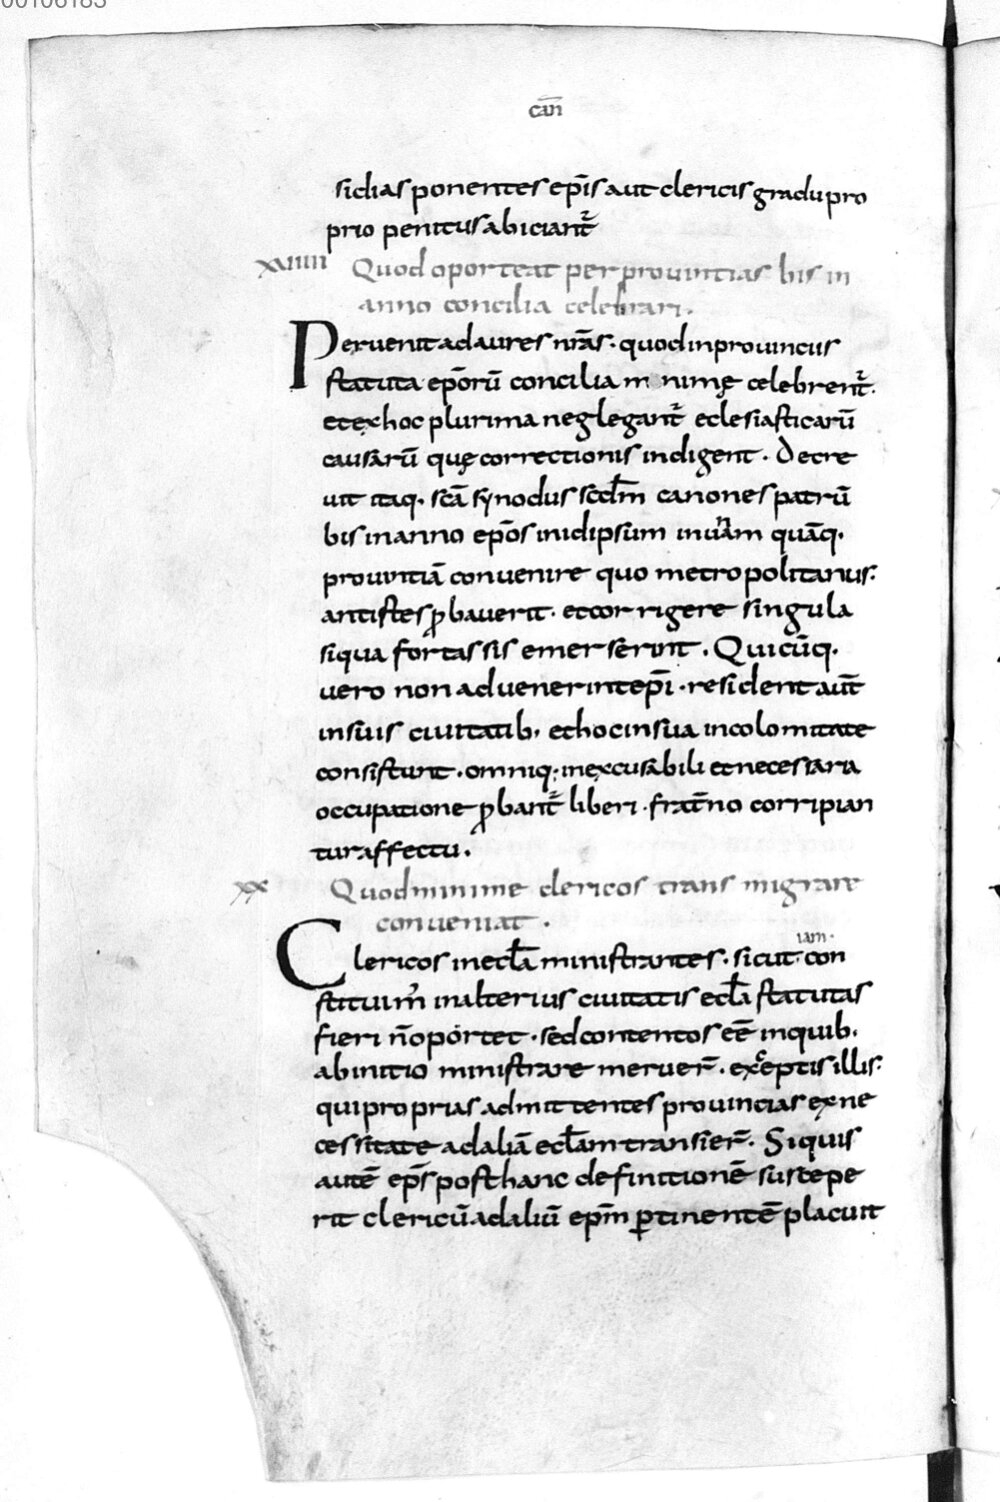 00106183
cañ
sidias ponentes ep̄is aut clericis gradu pro
prio penitus abiciant᷑
xviiii Quod oporteat per prouintias bis in
anno concilia celebrari.
Peruenit ad aures nr̄as · quod in prouinciis
statuta ep̄orū concilia minimę celebrent᷑.
et ex hoc plurima neglegant᷑ eclesiasticarū
causarū quę correctionis indigent · Decre
uit itaq· scā synodus scdm̄ canones patrū
bis in anno ep̄os in idipsum in unam quāq·
prouintiā conuenire quo metropolitanus:
antistes ꝓbauerit · et corrigere singula
siqua fortassis emerserint · Quicūq·
uero non aduenerint ep̄i · resident aut̄
in suis ciuitatib· et hoc in sua incolomitate
consistunt · omniq; inexcusabili et necessaria
occupatione ꝓbant᷑ liberi · frat̄no corripian
tur affectu.
xx Quod minime clericos transmigrare
conueniat ·
iam·
Clericos in ecl̄a ministrantes · sicut · con
stituim᷑ in alterius ciuitatis ecl̄a statutas
fieri n̄ oportet · sed contentos eē in quib·
ab initio ministrare meruer̄ · exceptis illis:
qui proprias admittentes prouincias ex ne
cessitate ad aliā ecl̄am transier̄ · Siquis
autē ep̄s post hanc definitionē suscepe
rit clericū ad aliū ep̄m ꝑtinentē placuit